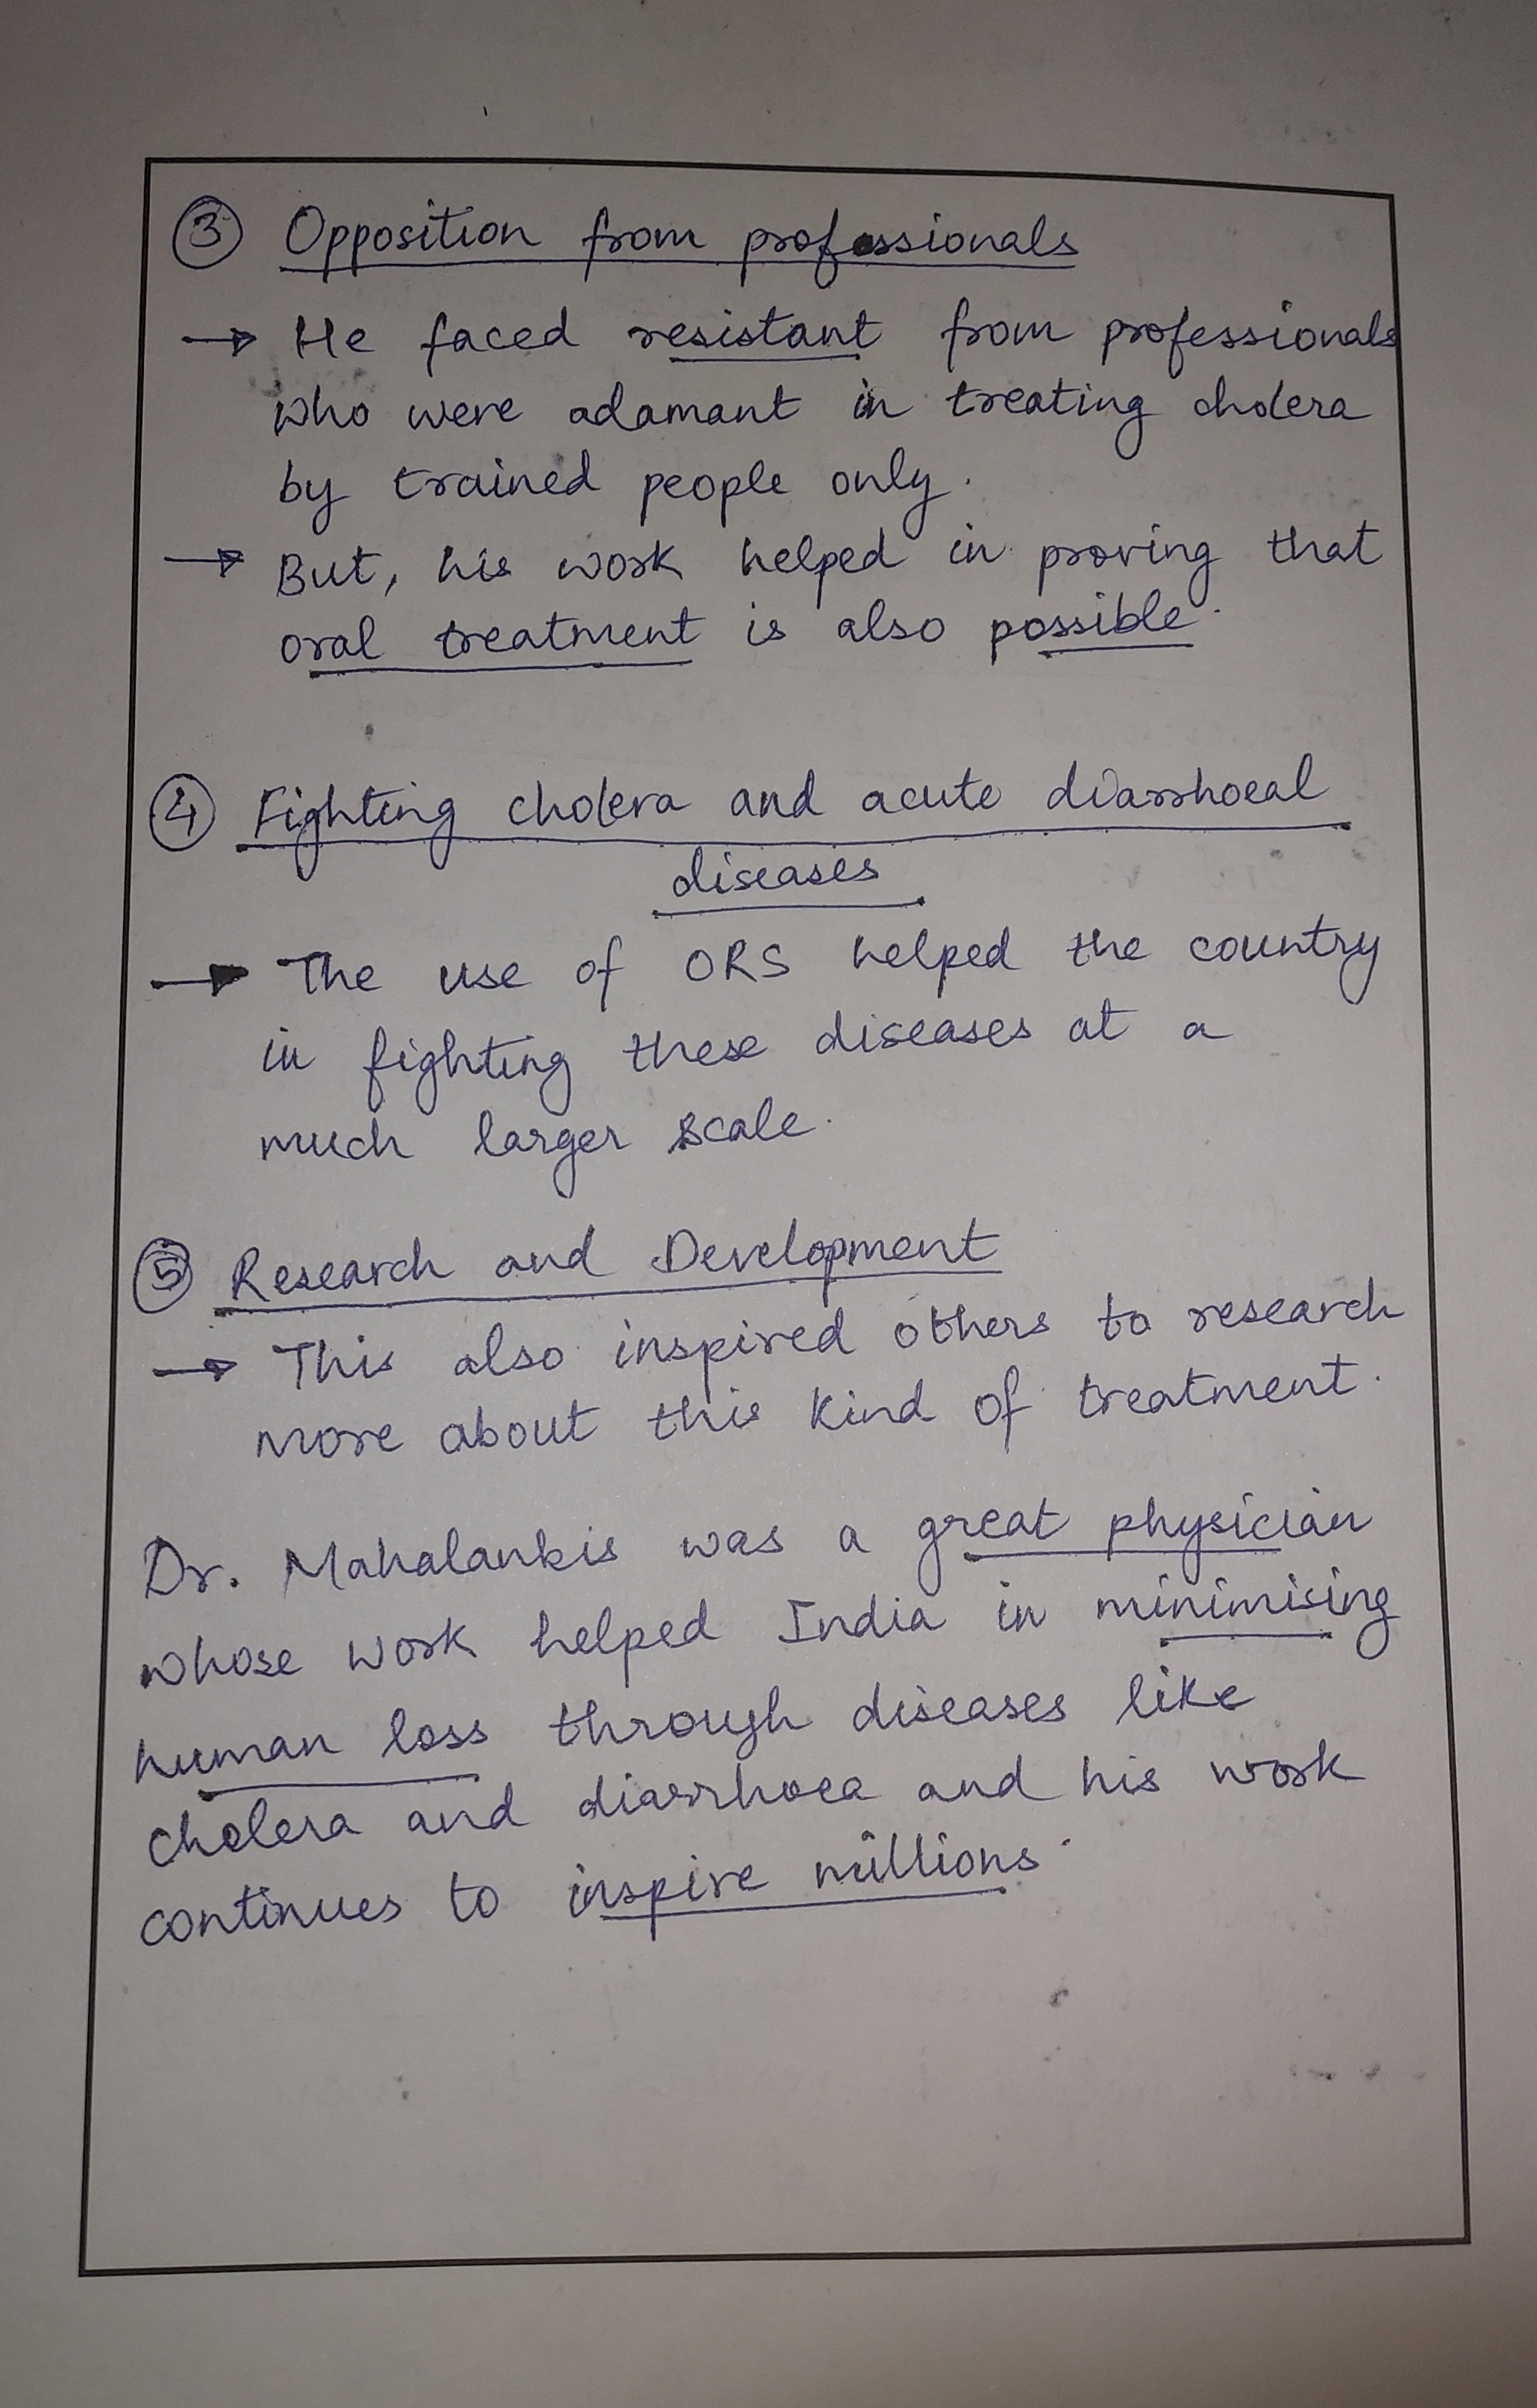 ③ Opposition from professionals
→ He faced resistant from professionals
who were adamant in treating cholera
by trained people only.
→ But, his work helped in proving that
oral treatment is also possible.
④ Fighting cholera and acute diarrhoeal
diseases
→ The use of ORS helped the country
in fighting these diseases at a
much larger scale.
⑤ Research and Development
→ This also inspired others to research
more about this kind of treatment.
Dr. Mahalankis was a great physician
whose work helped India in minimising
human loss through diseases like
cholera and diarrhoea and his work
continues to inspire millions.